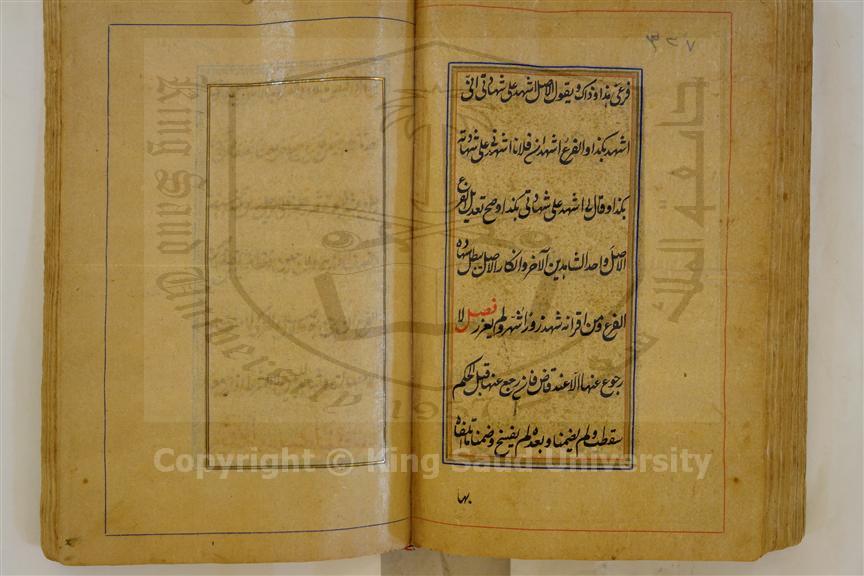 ٣٢٧
فرعي هذا وذاك ويقول الاصل اشهد على شهادتي اني
اشهد بكذا والفرع اشهد ان فلانا اشهدني على شهادته
بكذا وقال لي اشهد على شهادتي بكذا وصح تعديل الفرع
الاصل واحد الشاهدين الآخر وانكار الاصل يبطل شهادة
الفرع ومن اقر انه شهد زورا شهر ولم يعزر فصل لا
رجوع عنها الا عند قاض فان رجع عنها قبل الحكم
سقطت ولم يضمنا وبعده لم يفسخ وضمنا ما تلفاه
بها
جامعة الملك
King Saud University
1957
Copyright © King Saud University